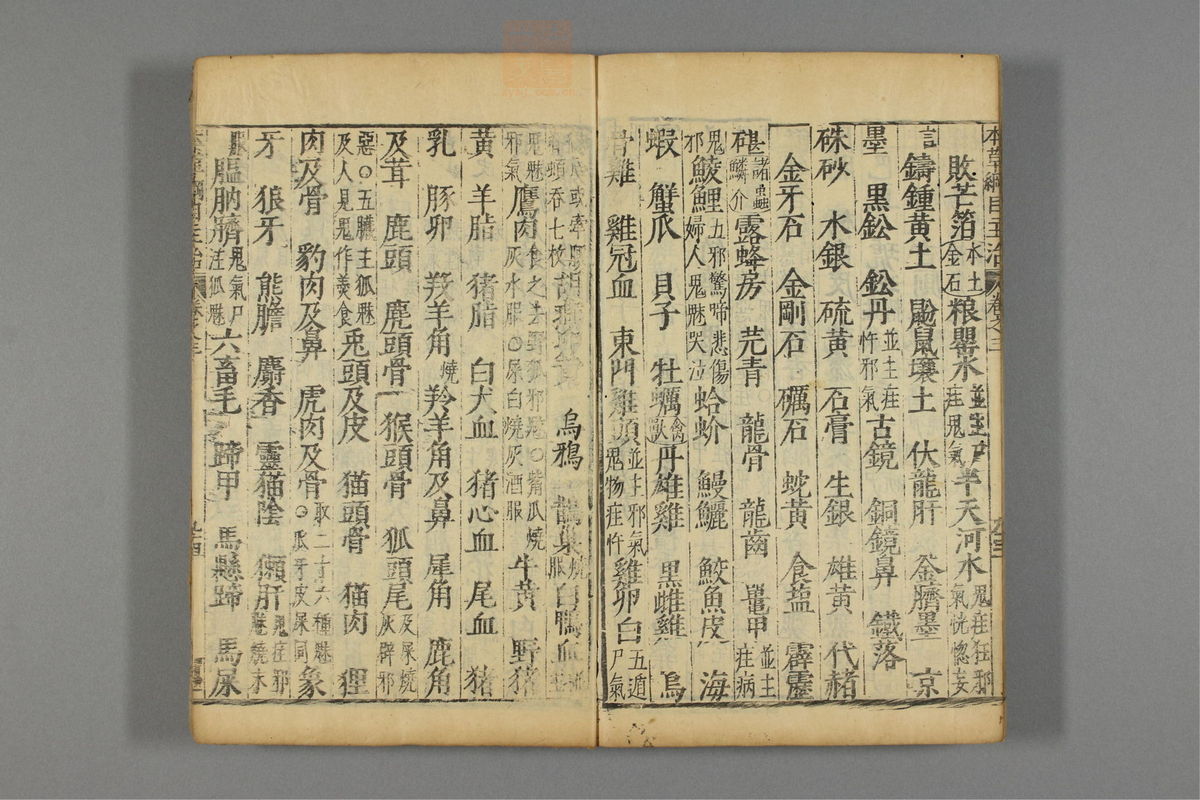 敗芒箔 木土金石 粮罌水 並主疰鬼氣 半天河水 鬼疰狂邪氣恍惚妄
言 鑄鍾黃土 鼢鼠壤土 伏龍肝 釜臍墨 京
墨 黑鈆 鈆丹 並主疰忤邪氣 古鏡 銅鏡鼻 鐵落
硃砂 水銀 硫黃 石膏 生銀 雄黃 代赭
金牙石 金剛石 礪石 蛇黃 食鹽 霹靂
碪 諸蟲鱗介 露蜂房 芫青 龍骨 龍齒 鼉甲 並主疰病
鬼邪 鯪鯉 五邪驚啼悲傷婦人鬼魅哭泣 蛤蚧 鰻鱺 鮫魚皮 海
蝦 蟹爪 貝子 牡蠣 禽獸 丹雄雞 黑雌雞 烏
骨雞 雞冠血 東門雞頭 並主邪氣鬼物疰忤 雞卵白 五遁尸氣
烏鴉 鵲巢 白鴨血
鬼魅邪氣 鷹肉 食之 灰水服○屎白燒灰酒服 牛黃 野猪
黃 羊脂 猪脂 白犬血 猪心血 尾血 猪
乳 豚卵 羖羊角 燒 羚羊角及鼻 犀角 鹿角
及茸 鹿頭 麂頭骨 猴頭骨 狐頭尾 及屎燒灰辟邪
惡○五臟主狐魅及人見鬼作羹食 兎頭及皮 猫頭骨 猫肉 狸
肉及骨 豹肉及鼻 虎肉及骨 取二十六種魅○爪牙皮屎同 象
牙 狼牙 熊膽 麝香 靈猫陰 獺肝 鬼疰邪魅燒末
服 膃肭臍 鬼氣尸疰狐魅 六畜毛 蹄甲 馬懸蹄 馬屎